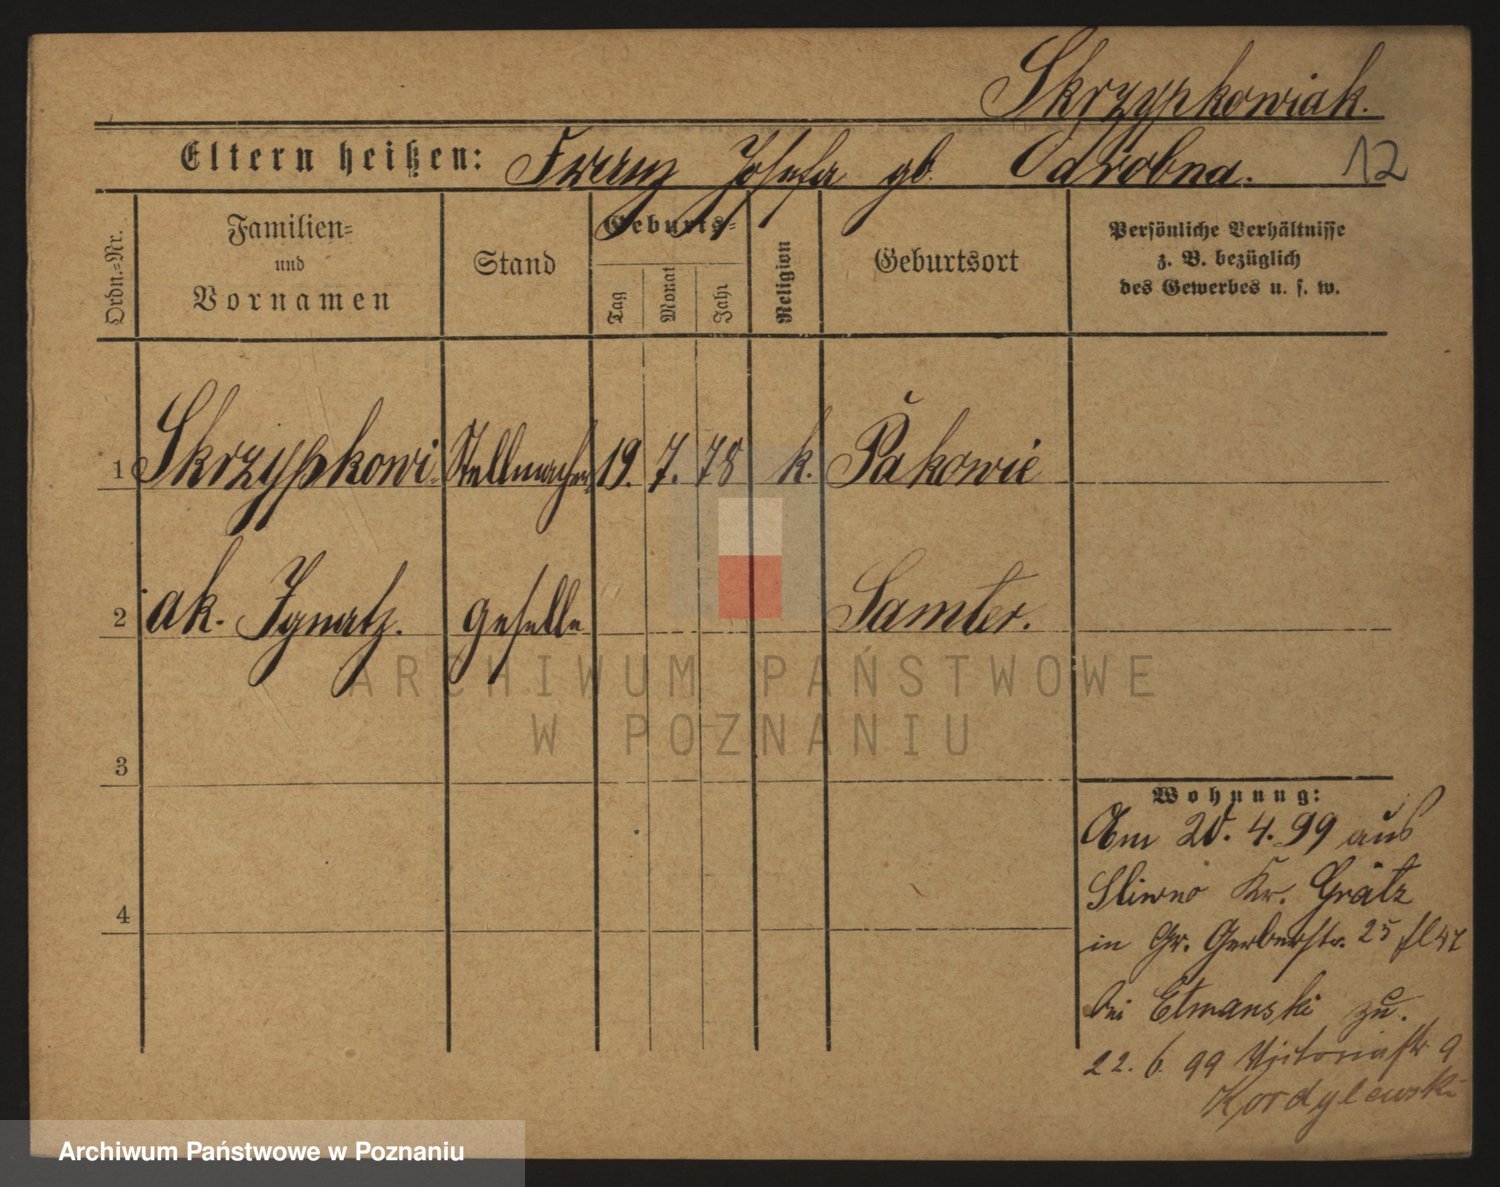 Skrzypkowiak.
Eltern heißen: Franz Josefa gb. Odrobna. 12
Ordn.=Nr.
Familien=
und
Vornamen
Stand
Geburts=
Tag
Monat
Jahr
Religion
Geburtsort
Persönliche Verhältnisse
z. B. bezüglich
des Gewerbes u. s. w.
1 Skrzypkowi- Stellmacher 19. 7. 78 k. Pakowie
2 ak. Ignatz. geselle Samter.
3
4
Wohnung:
Am 20. 4. 99 aus
Sliwno Kr. Grätz
in Gr. Gerberstr. 25
bei Etmanski zu.
22. 6. 99 Victoriastr 9
Kordylewski
ARCHIWUM PAŃSTWOWE
W POZNANIU
Archiwum Państwowe w Poznaniu